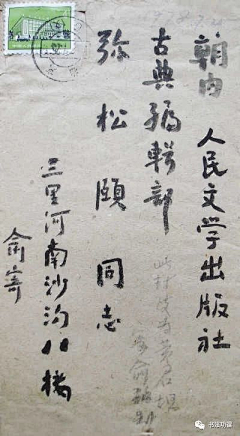 朝内 人民文学出版社
古典编辑部
弥松颐 同志
三里河南沙沟八楼
俞寄
书法功课